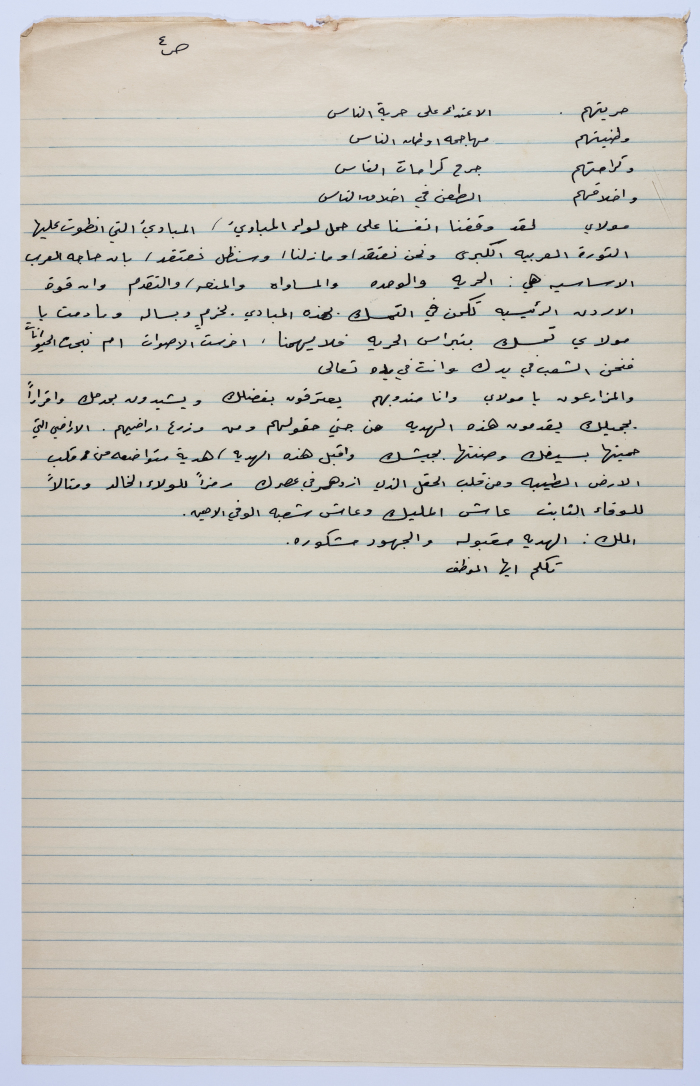 ص٤
حريتهم . الاعتداء على حرية الناس
وطنيتهم مهاجمه اوطان الناس
وكرامتهم جرح كرامات الناس
واخلاقهم الطعن في اخلاق الناس
مولاي لقد وقفنا انفسنا على حمل لواء المبادئ / المبادئ التي انطوت عليها
الثورة العربيه الكبرى ونحن نعتقد / وما زلنا / وسنظل نعتقد / بان حاجه العرب
الاساسيه هي : الحريه والوحده والمساواه والمنعه / والتقدم وان قوة
الاردن الرئيسيه تكمن في التمسك بهذه المبادئ بحزم وبساله وما دمت يا
مولاي تمسك بنبراس الحريه فلا يهمنا ، اخرست الاصوات ام نبحت الحيوانات
فنحن الشعب في يدك وانت في يد الله تعالى
والمزارعون يا مولاي وانا مندوبهم يعترفون بفضلك ويشيدون بمدحك واقراراً
بجميلك يقدمون هذه الهديه من جني حقولهم ومن زروع اراضيهم . الاراضي التي
حميتها بسيفك وصنتها بجيشك واقبل هذه الهديه / هدية متواضعه من قلب
الارض الطيبه ومن قلب الحقل الذي ازدهر في عصرك رمزاً للولاء الخالد ومثالاً
للوفاء الثابت عاش المليك وعاش شعبه الوفي الامين .
الملك : الهديه مقبوله والجهود مشكوره .
تكلم ايها الموظف